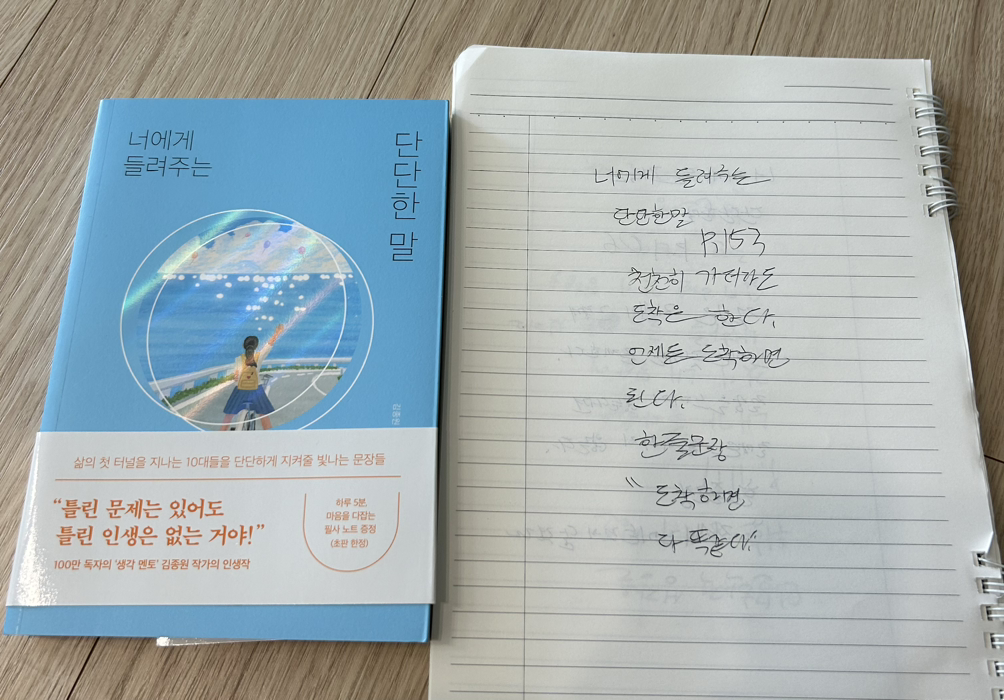 너에게
들려주는
단단한 말
김종원
삶의 첫 터널을 지나는 10대들을 단단하게 지켜줄 빛나는 문장들
“틀린 문제는 있어도
틀린 인생은 없는 거야!”
100만 독자의 '생각 멘토' 김종원 작가의 인생작
하루 5분,
마음을 다잡는
필사 노트 증정
(초판 한정)
너에게 들려주는
단단한말
P.153
천천히 가더라도
도착은 한다.
언제든 도착하면
된다.
한줄문장
" 도착하면
다 똑같다."